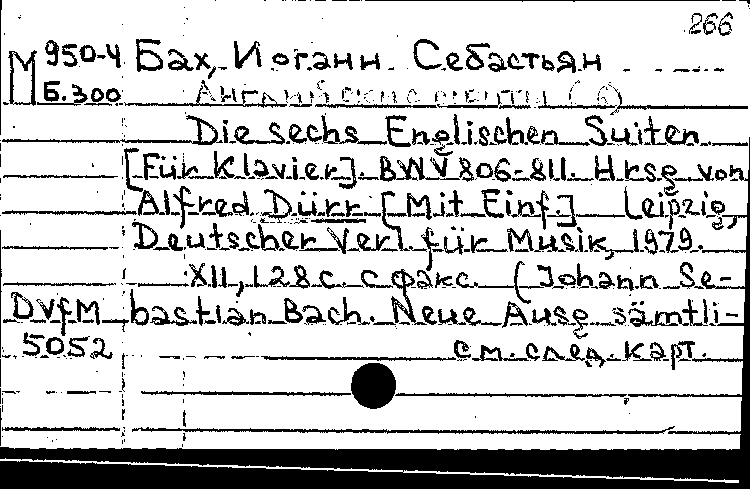 266
М 950-4 Бах, Иоганн Себастьян
Б.300 Английские сюиты (6)
Die sechs Englischen Suiten
[Für Klavier]. BWV 806-811. Hrsg von
Alfred Dürr [Mit Einf.] Leipzig,
Deutscher Verl. für Musik, 1979.
XII, 128 с. с факс. (Johann Se-
DVfM bastian Bach. Neue Ausg sämtli-
5052 см. след. карт.